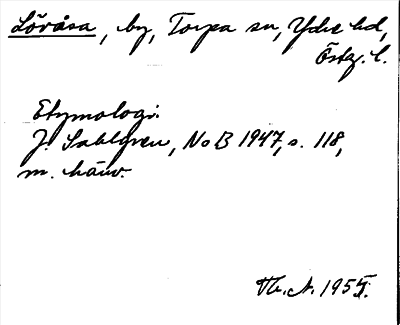 Lövåsa, by, Torpa sn, Ydre hd,
Östg. l.
Etymologi:
J. Sahlgren, NoB 1947, s. 118,
m. hänv.
Th. A. 1955.